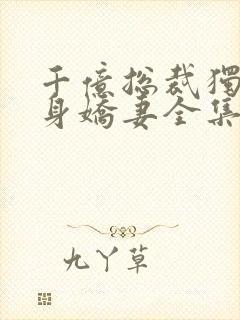 千億總裁獨
身嬌妻全集
九丫草